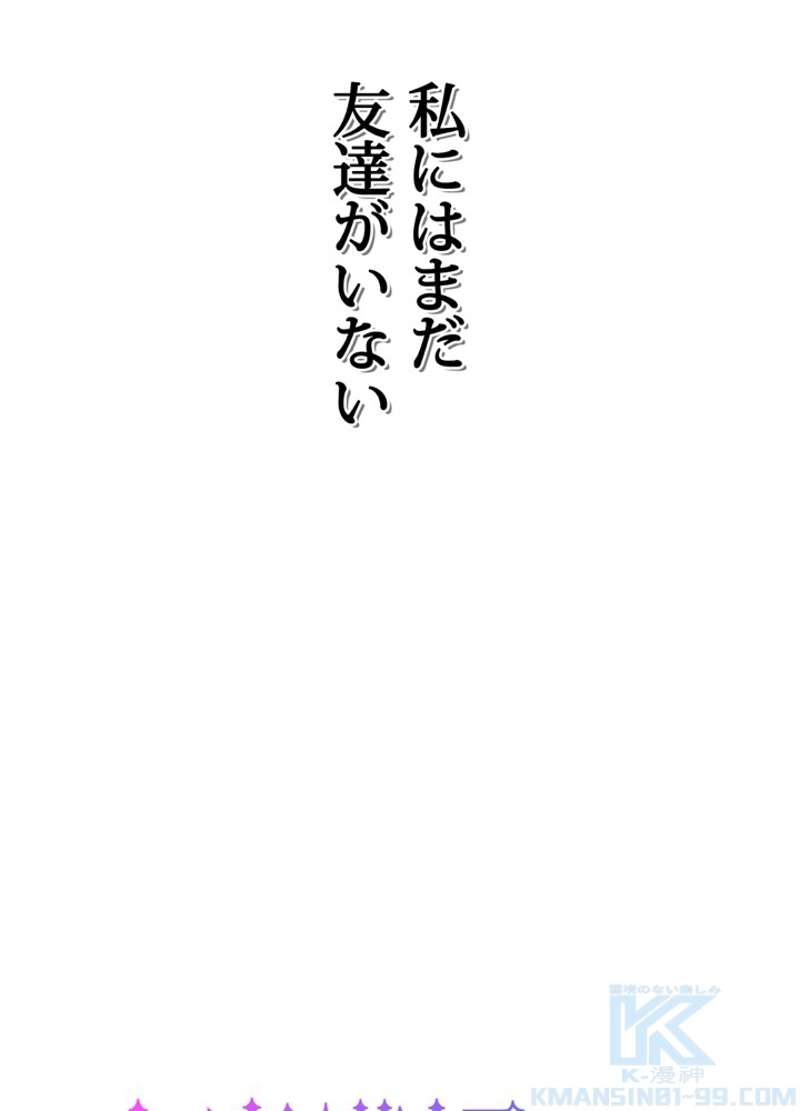 私にはまだ
友達がいない
限境のない楽しみ
K-漫神
KMANSIN01-99.COM